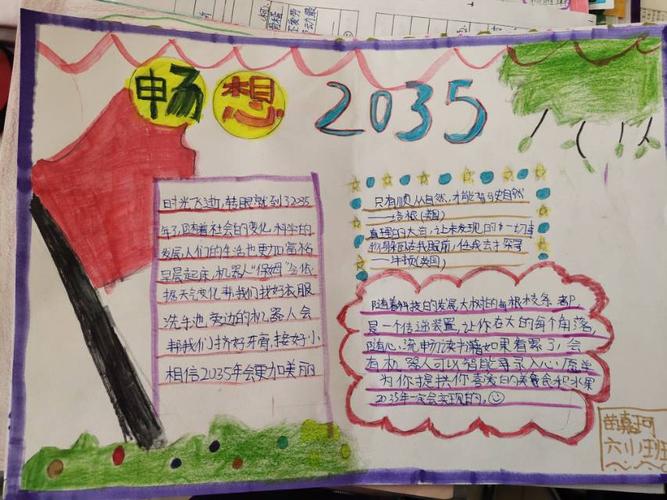 畅想 2035
时光飞逝,转眼就到了2035
年了,随着社会的变化,科学的
发展,人们的生活也更加富裕
早晨起床,机器人“保姆”会依
据天气变化,帮我们找好衣服
洗车池旁边的机器人会
帮我们挤好牙膏,接好水
相信2035年会更加美丽
只有顺从自然,才能驾驭自然
——培根(英国)
真理的大海,让未发现的一切事
物躺卧在我眼前,任我去探寻
——牛顿(英国)
随着科技的发展大树的每根枝条都
是一个传递装置,让你在大的每个角落,
随心流畅读书籍如果看累了,会
有机器人可以智能寻录入心
为你提供你喜爱的美食和水果
2035年一定会实现的。
六小班